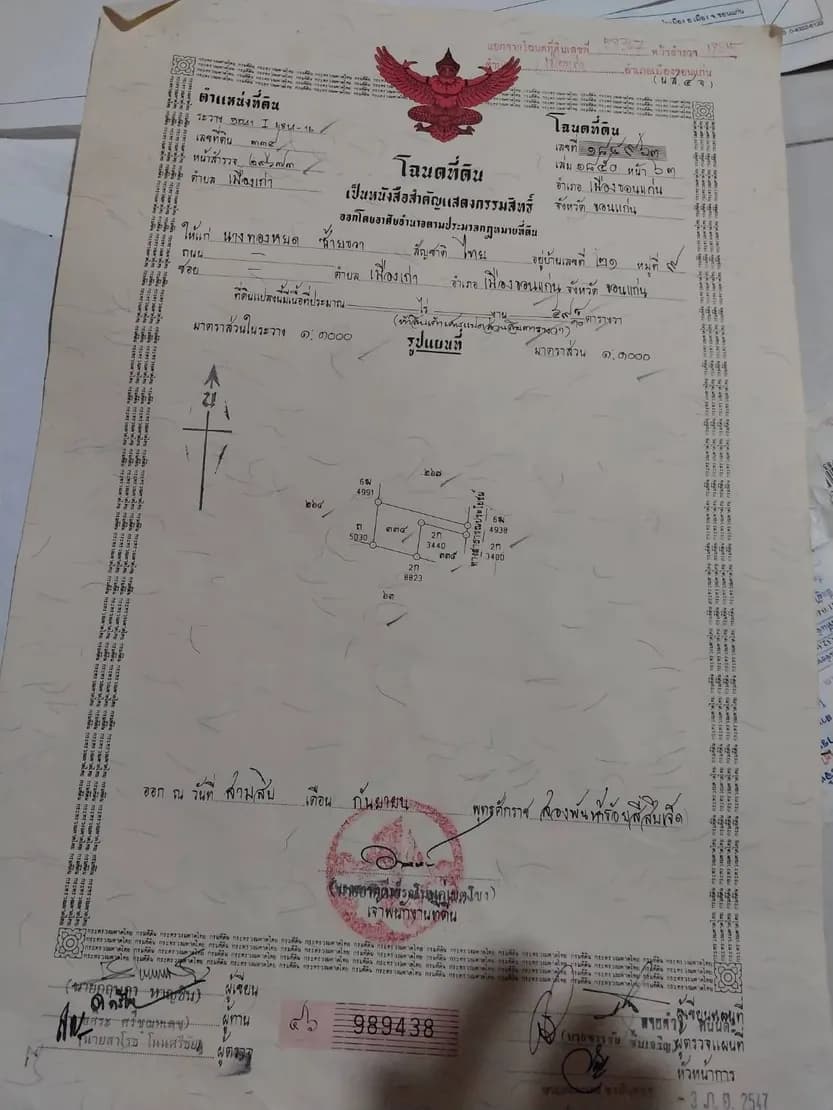 แยกจากโฉนดที่ดินเลขที่ หน้าสำรวจ
อำเภอเมืองขอนแก่น
(น.ส.๔ จ)
ตำแหน่งที่ดิน
ระวาง I
เลขที่ดิน ๓๓๔
หน้าสำรวจ ๒๙๖๗๓
ตำบล เมืองเก่า
โฉนดที่ดิน
เลขที่ ๑๘๔๙๖๓
เล่ม ๑๘๕๐ หน้า ๖๓
อำเภอ เมืองขอนแก่น
จังหวัด ขอนแก่น
โฉนดที่ดิน
เป็นหนังสือสำคัญแสดงกรรมสิทธิ์
ออกโดยอาศัยอำนาจตามประมวลกฎหมายที่ดิน
ให้แก่ นางทองหยด ซ้ายขวา สัญชาติ ไทย อยู่บ้านเลขที่ ๒๑ หมู่ที่ ๙
ถนน — ตำบล เมืองเก่า อำเภอ เมืองขอนแก่น จังหวัด ขอนแก่น
ซอย —
ที่ดินแปลงนี้มีเนื้อที่ประมาณ — ไร่ — งาน ตารางวา
มาตราส่วนในระวาง ๑:๑๐๐๐
รูปแผนที่
มาตราส่วน ๑:๑๐๐๐
น
๒๖๗
6ฒ
4991
๒๖๔
๓๓๔
ถ
5030
2ก
3440
๓๓๕
2ก
8823
๖๓
ทางสาธารณประโยชน์
6ฒ
4938
2ก
3400
ออก ณ วันที่ สามสิบ เดือน กันยายน พุทธศักราช สองพันห้าร้อยสี่สิบเจ็ด
เจ้าพนักงานที่ดิน
ผู้เขียน
ผู้ทาน
ผู้ตรวจ
๔๖ 989438
ผู้เขียนแผนที่
ผู้ตรวจแผนที่
หัวหน้าการ
2547